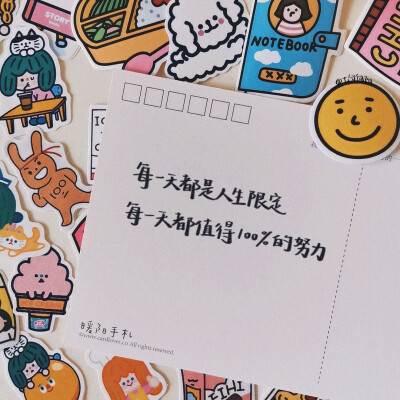 STORY
NOTEBOOK
每一天都是人生限定
每一天都值得100%的努力
暖阳手札
All rights reserved.